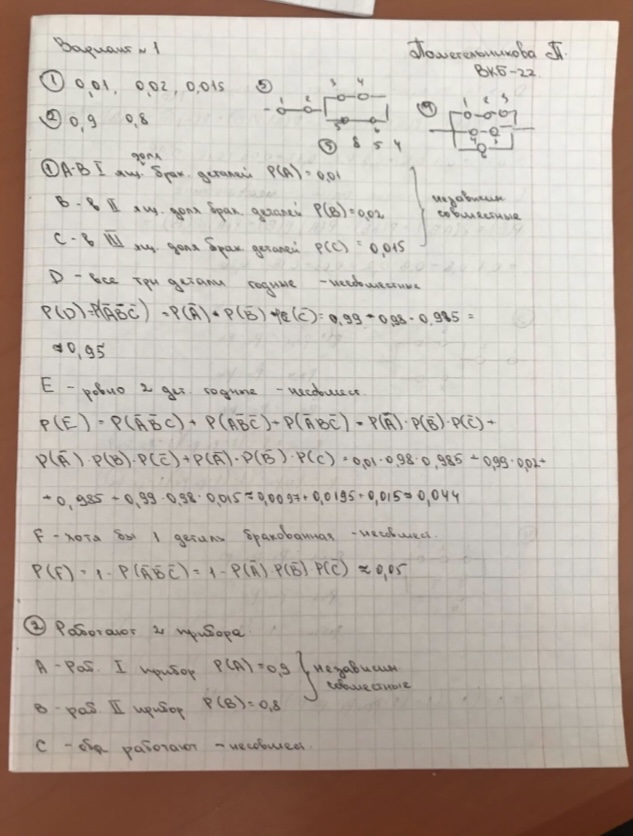 Вариант №1
Пометельникова П.
ВКБ-22.
① 0,01, 0,02, 0,015
② 0,9 0,8
⑤ 1 2 3 4 5 6
④ 1 2 3 4 5 6
③ 8 5 4
① А-В I ящ. доля брак. деталей P(A)=0,01
В - в II ящ. доля брак. деталей P(B)=0,02
С - в III ящ. доля брак. деталей P(C)=0,015
независим
совместные
D - все три детали годные - несовместные
P(D)=P(A̅B̅C̅)=P(A̅)·P(B̅)·P(C̅)=0,99·0,98·0,985=
≈0,95
E - ровно 2 дет. годные - несовмест.
P(E)=P(A̅B̅C)+P(A̅B̅C̅)+P(A̅BC̅)=P(A̅)·P(B̅)·P(C̅)+
P(A̅)·P(B)·P(C̅)+P(A̅)·P(B̅)·P(C)=0,01·0,98·0,985+0,99·0,02·
·0,985+0,99·0,98·0,015≈0,0097+0,0195+0,015≈0,044
F - хотя бы 1 деталь бракованная - несовмест.
P(F)=1-P(A̅B̅C̅)=1-P(A̅)P(B̅)P(C̅)≈0,05
② Работают 2 прибора
А - раб. I прибор P(A)=0,9
независим
совместные
В - раб. II прибор P(B)=0,8
С - оба работают - несовмест.